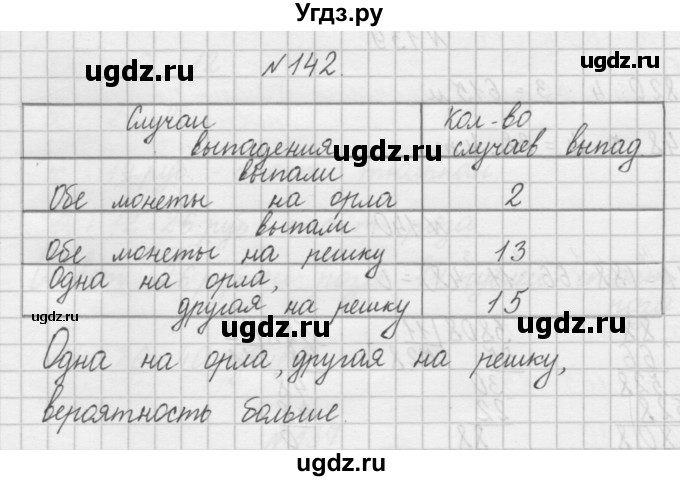 Угдз.ру
№142.
Случаи выпадения
Кол-во случаев выпад
Обе монеты выпали на орла
2
Обе монеты выпали на решку
13
Одна на орла,
другая на решку
15
Одна на орла, другая на решку,
вероятность больше.
ugdz.ru
ugdz.ru
ugdz.ru
ugdz.ru
ugdz.ru
ugdz.ru
ugdz.ru
ugdz.ru
ugdz.ru
ugdz.ru